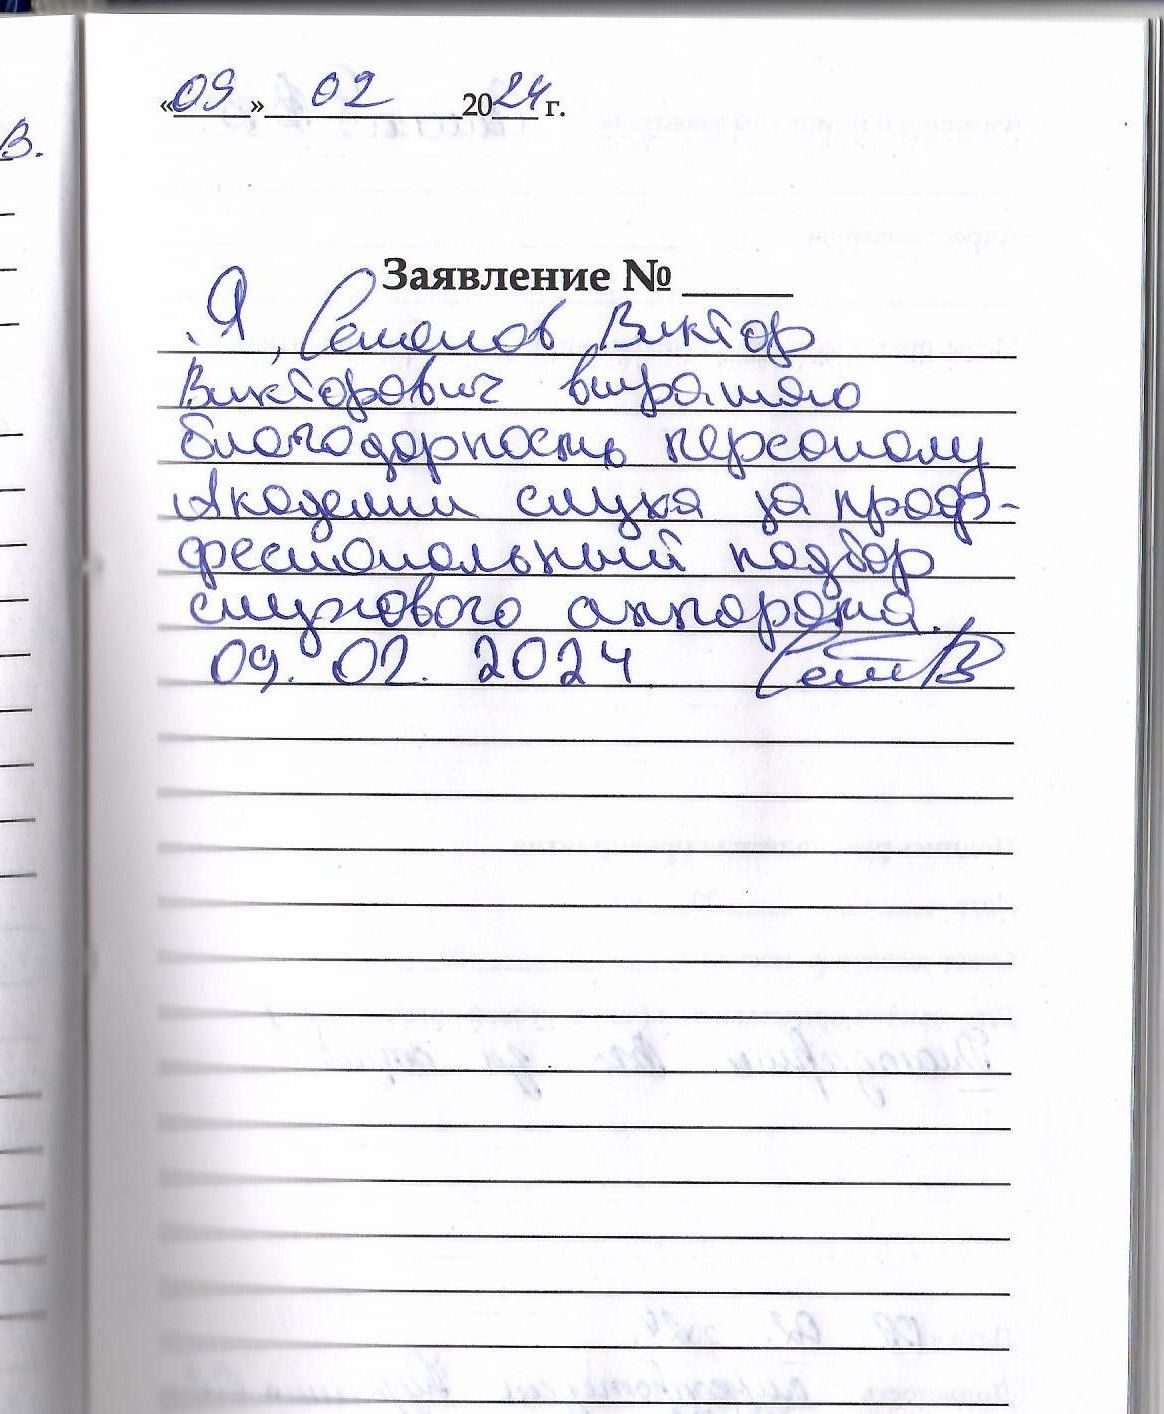 «09» 02 2024 г.
В.
Заявление № _____
Я, Семенов Виктор
Викторович выражаю
благодарность персоналу
Академии слуха за проф-
фессиональный подбор
слухового аппарата.
09.02.2024